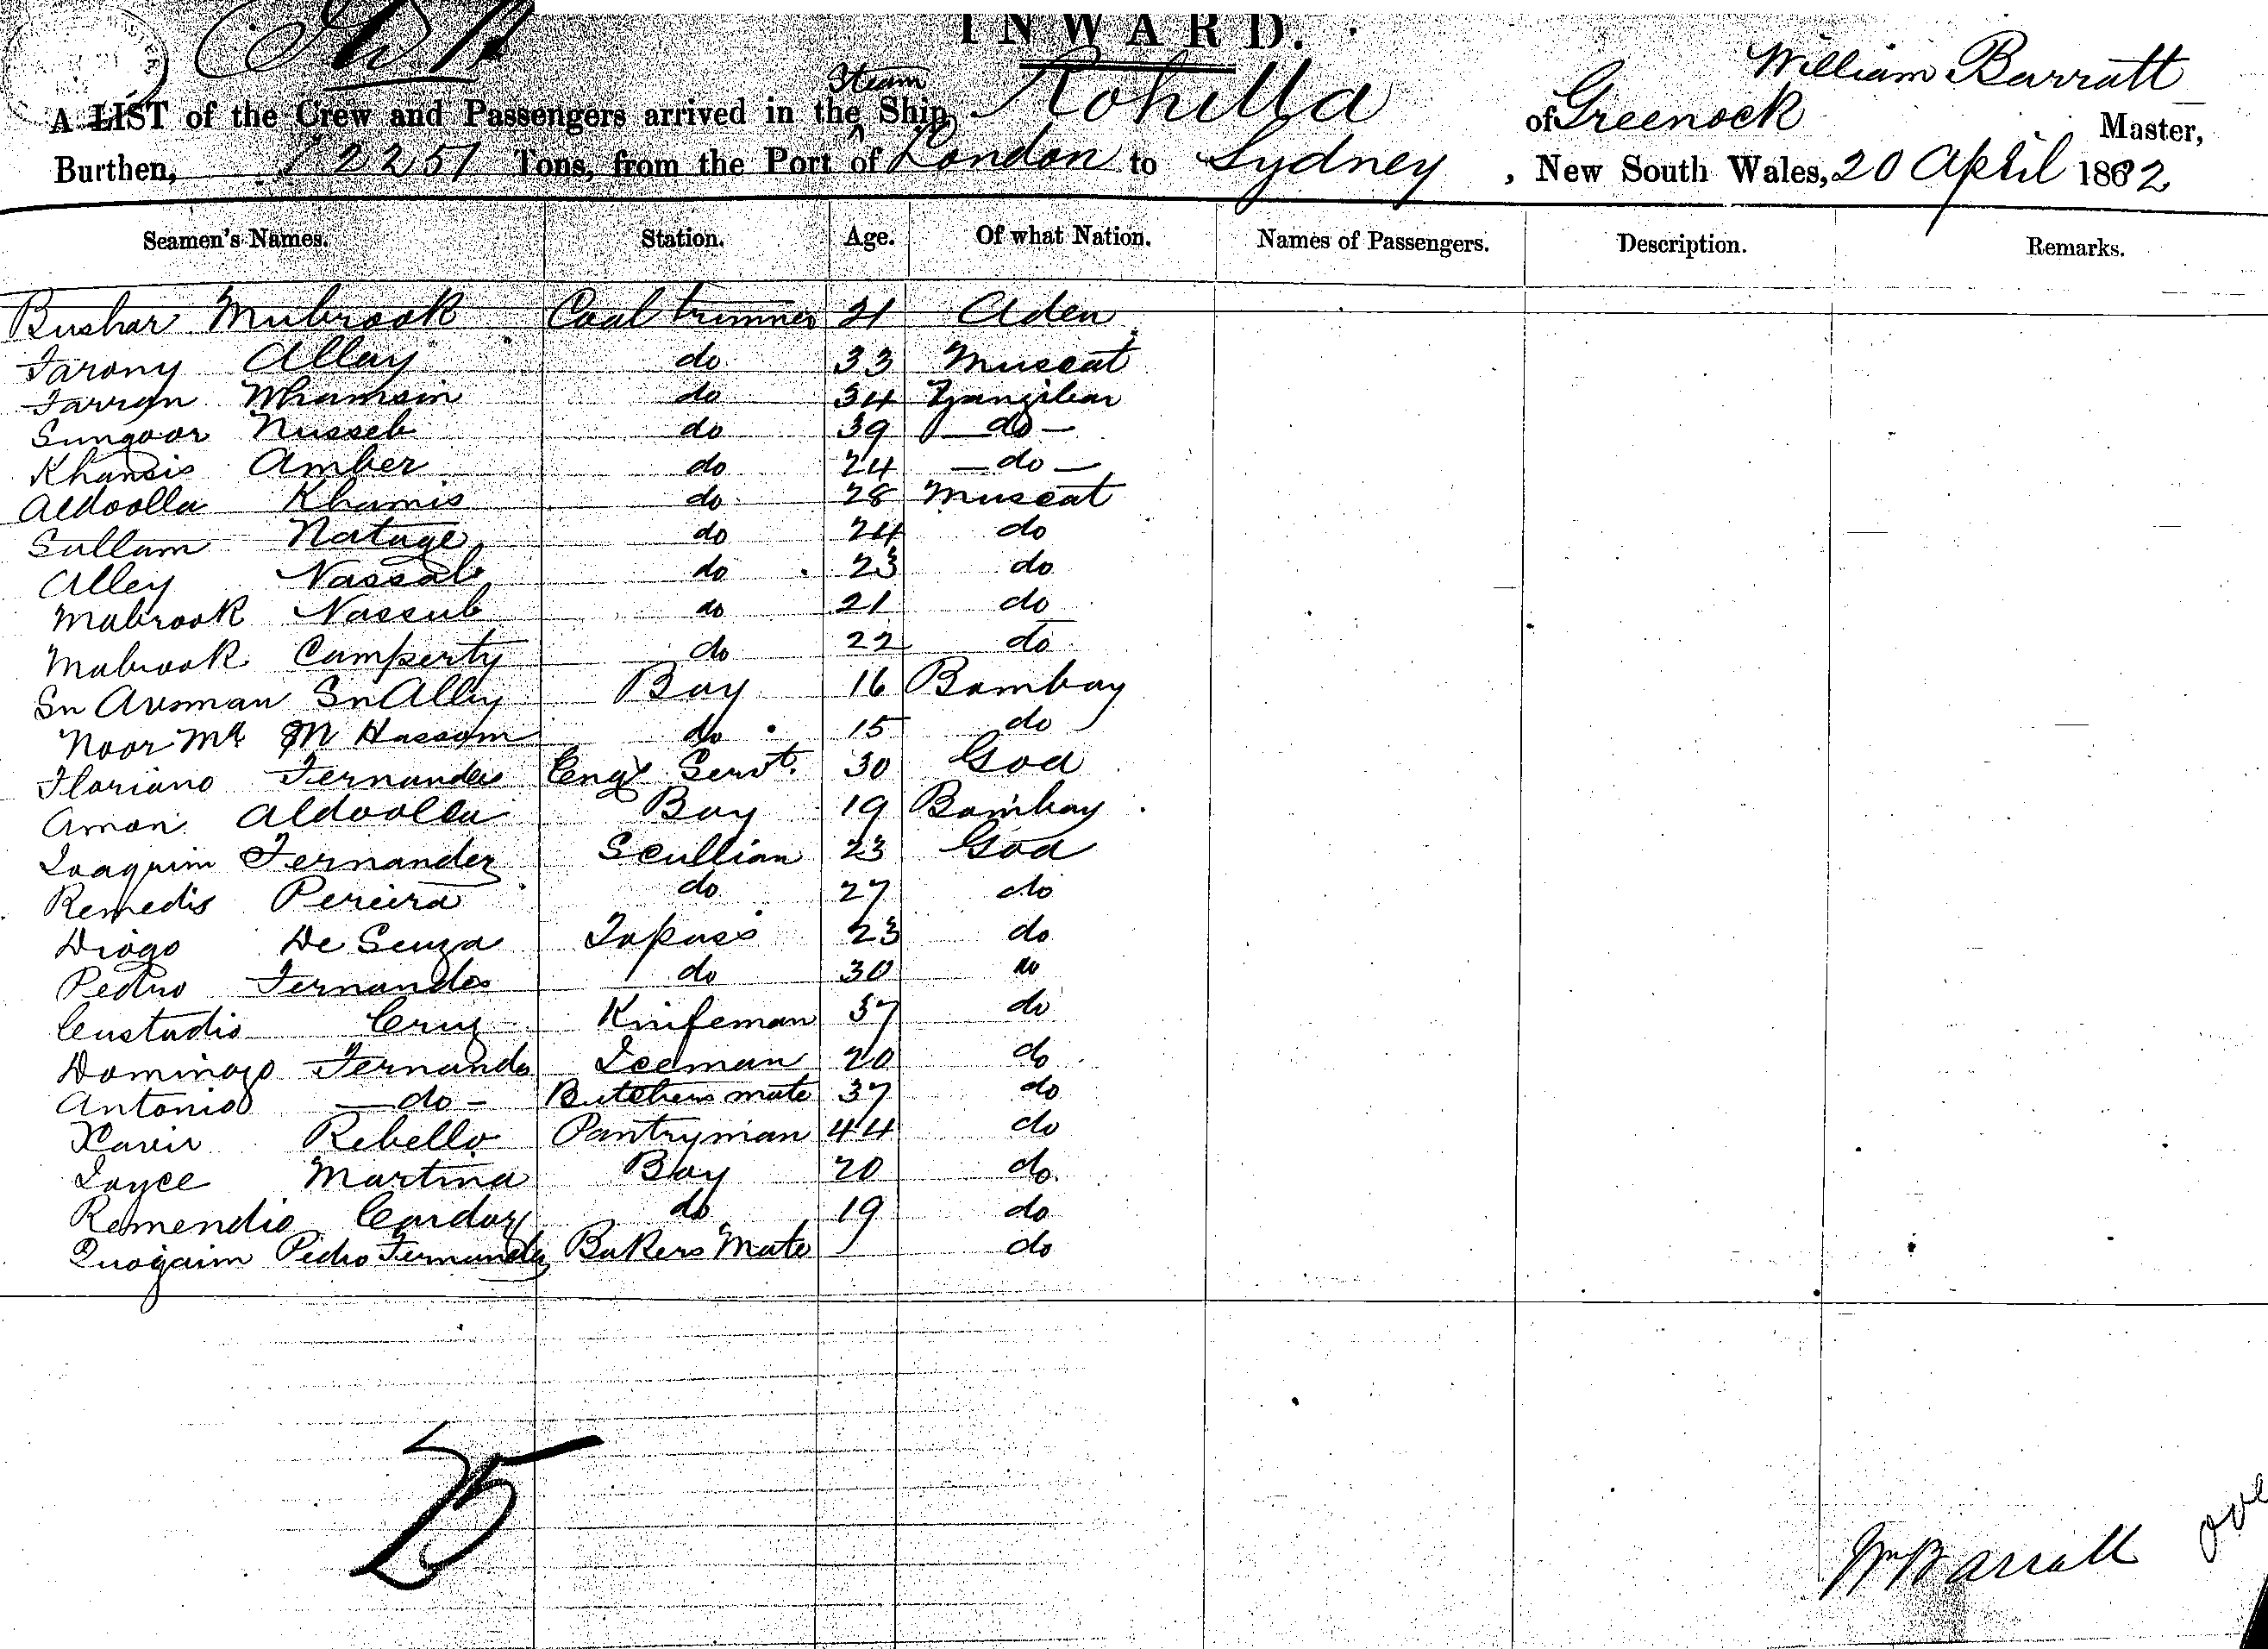 INWARD.
William Barratt
A LIST of the Crew and Passengers arrived in the Steam Ship Rohilla of Greenock Master,
Burthen, 2251 Tons, from the Port of London to Sydney, New South Wales, 20 April 1882
Seamen's Names. Station. Age. Of what Nation. Names of Passengers. Description. Remarks.
Bushar Mubrook Coal trimmer 21 Aden
Farony Allay do 33 Muscat
Farran Whamsin do 34 Zanzibar
Sungoor Nusseb do 39 do
Khansis Amber do 24 do
Aldoolla Khamis do 28 Muscat
Sullam Natuge do 24 do
Alley Nassab do 23 do
Mabrook Nassub do 21 do
Mabrook Camperty do 22 do
Sn Ausman Sn Alley Boy 16 Bombay
Noor Md M Hassom do 15 do
Floriano Fernandes Engr Servt. 30 Goa
Aman Aldoolla Boy 19 Bombay
Joaquim Fernandez Scullian 23 Goa
Remedis Pereira do 27 do
Diogo De Souza Topass 23 do
Pedro Fernandes do 30 do
Custadio Cruz Knifeman 37 do
Domingo Fernandes Iceman 20 do
Antonio do Butchers mate 37 do
Xavir Rebello Pantryman 44 do
Joyce Martina Boy 20 do
Remendio Cardoz do 19 do
Quogaim Pedro Fernandez Bakers Mate do
25
Wm Barratt
over